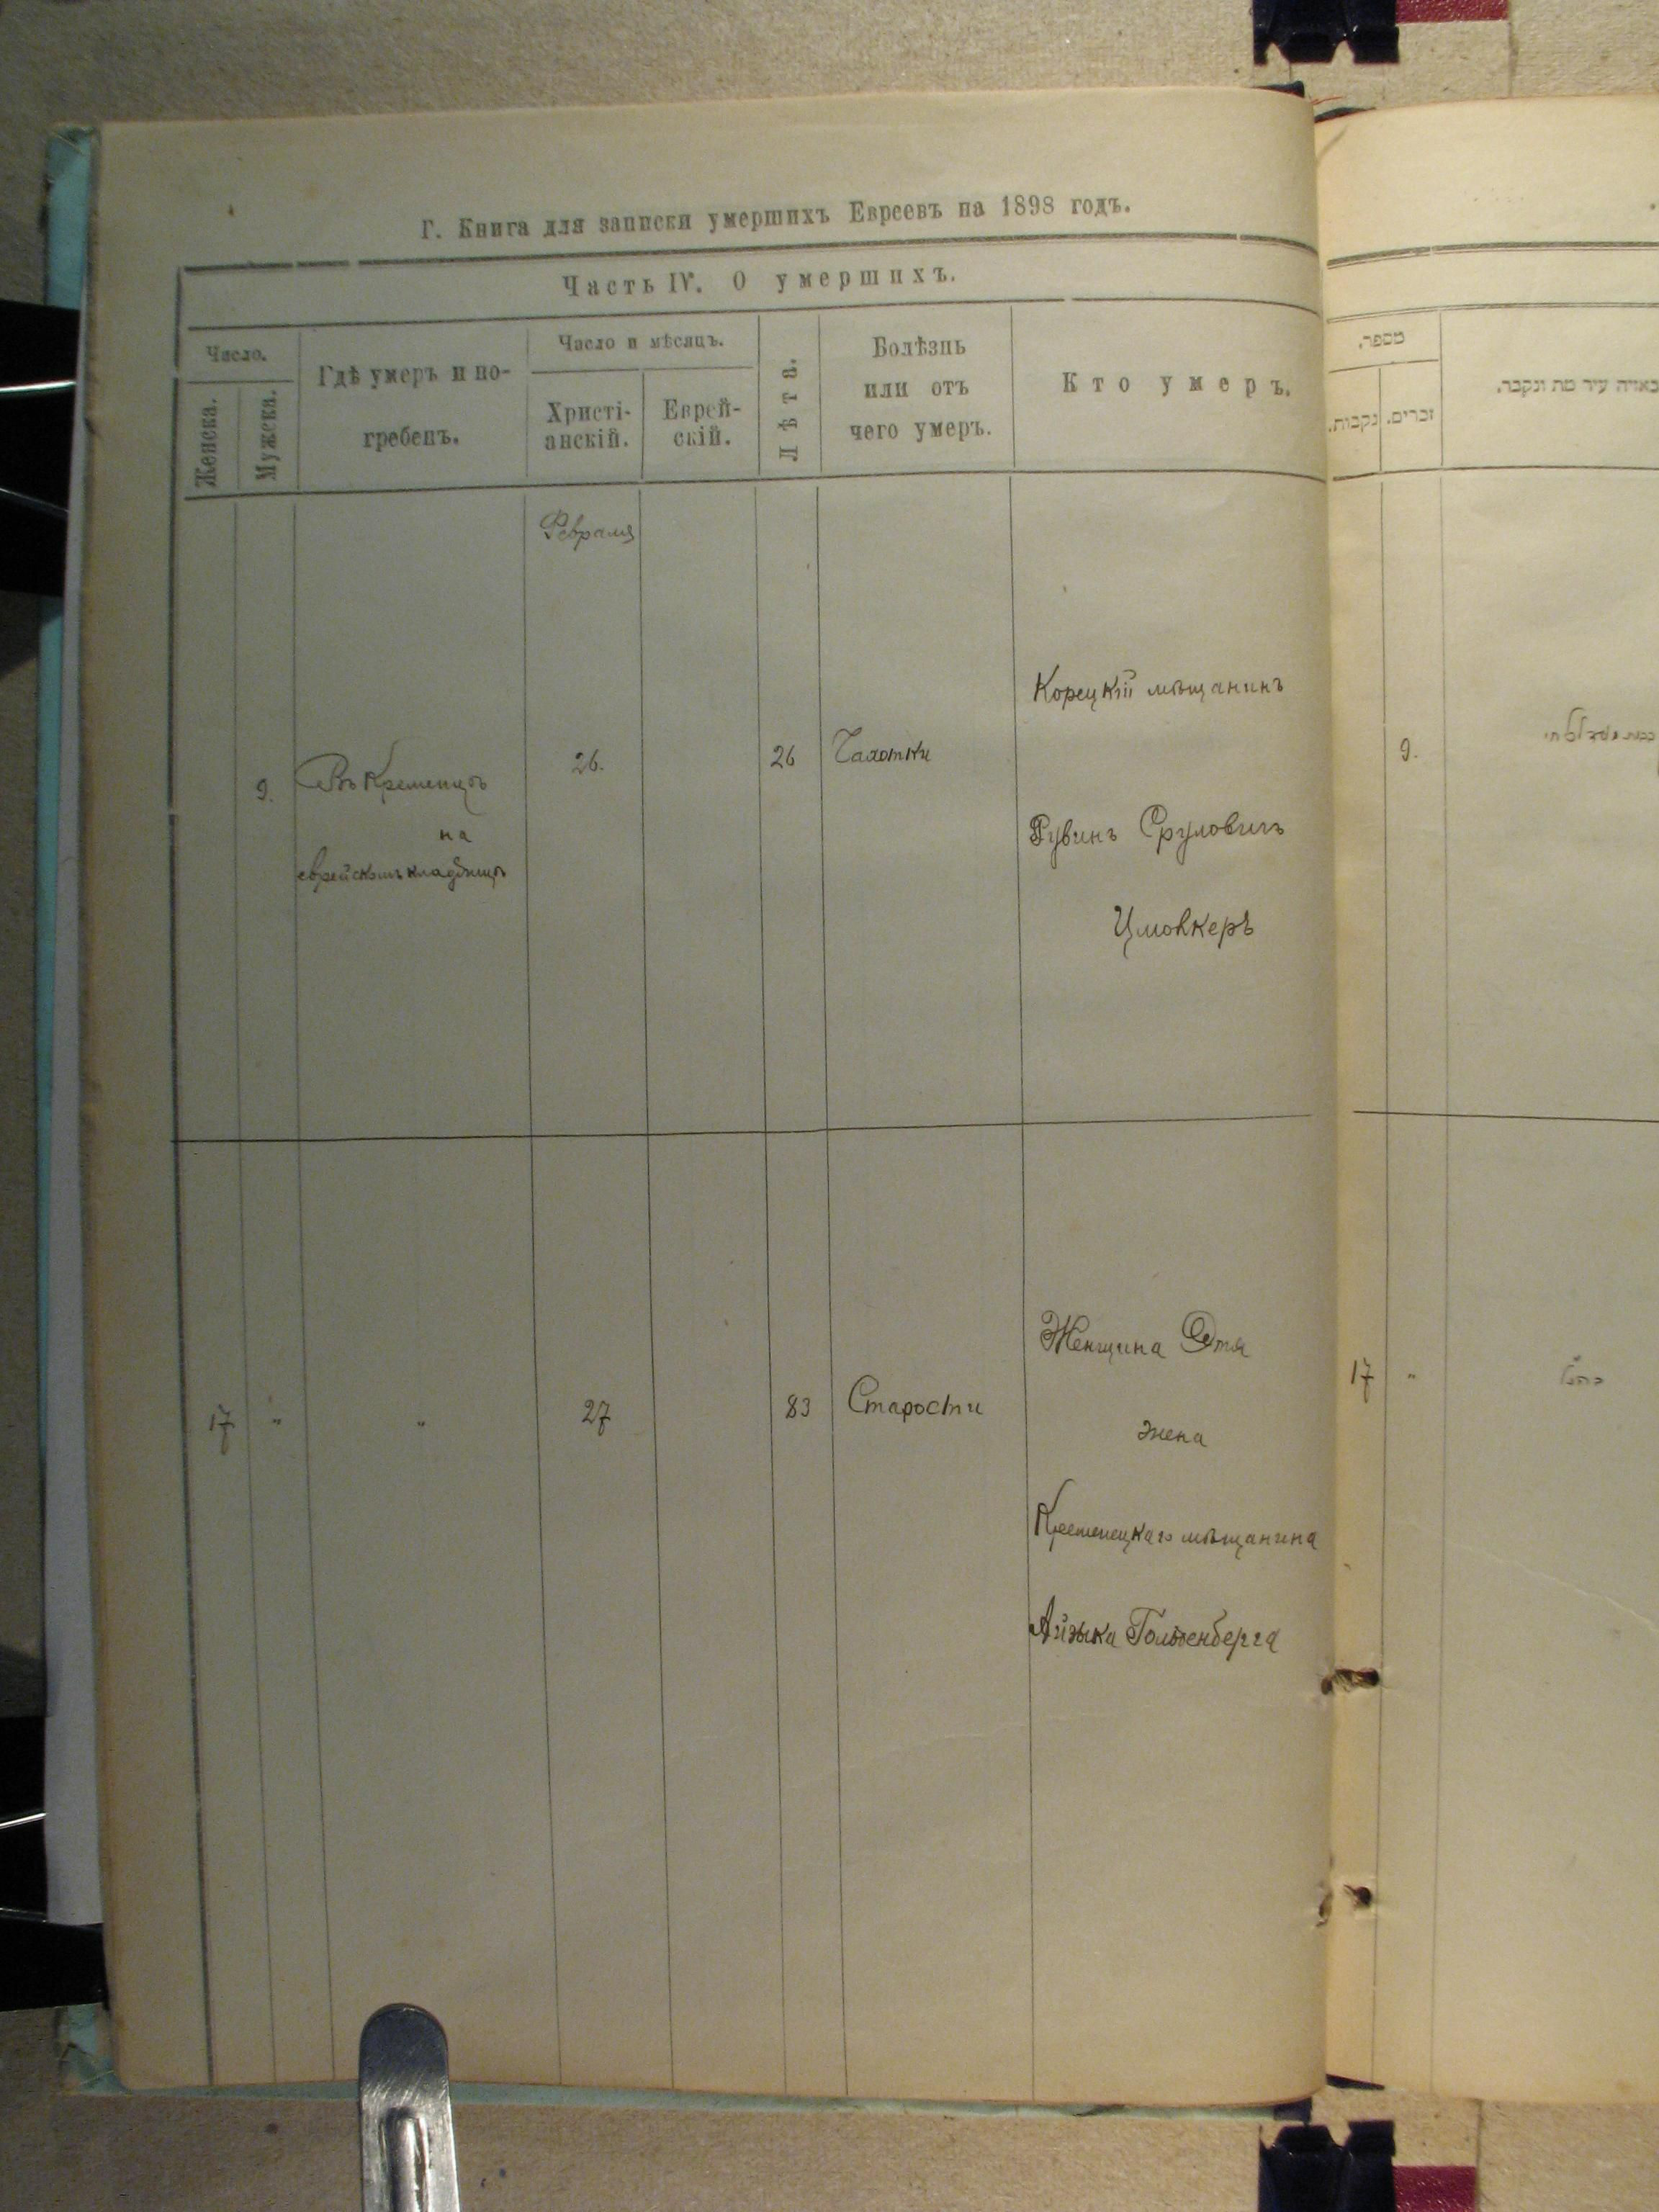 Г. Книга для записки умершихъ Евреевъ на 1898 годъ.
Часть IV. О умершихъ.
Число.
Женска.
Мужска.
Гдѣ умеръ и по-
гребенъ.
Число и мѣсяцъ.
Христі-
анскій.
Еврей-
скій.
Лѣта.
Болѣзнь
или отъ
чего умеръ.
Кто умеръ.
Февраля
9.
Въ Кременцѣ
на
еврейскомъ кладбищѣ
26.
26
Чахотки
Корецкій мѣщанинъ
Рувинъ Сруловичъ
Цмокеръ
17
"
"
27
83
Старости
Женщина Этя
жена
Кременецкаго мѣщанина
Айзыка Гольденберга
מספר.
זכרים.
נקבות.
באיזה עיר מת ונקבר.
9.
17
"
כנ"ל